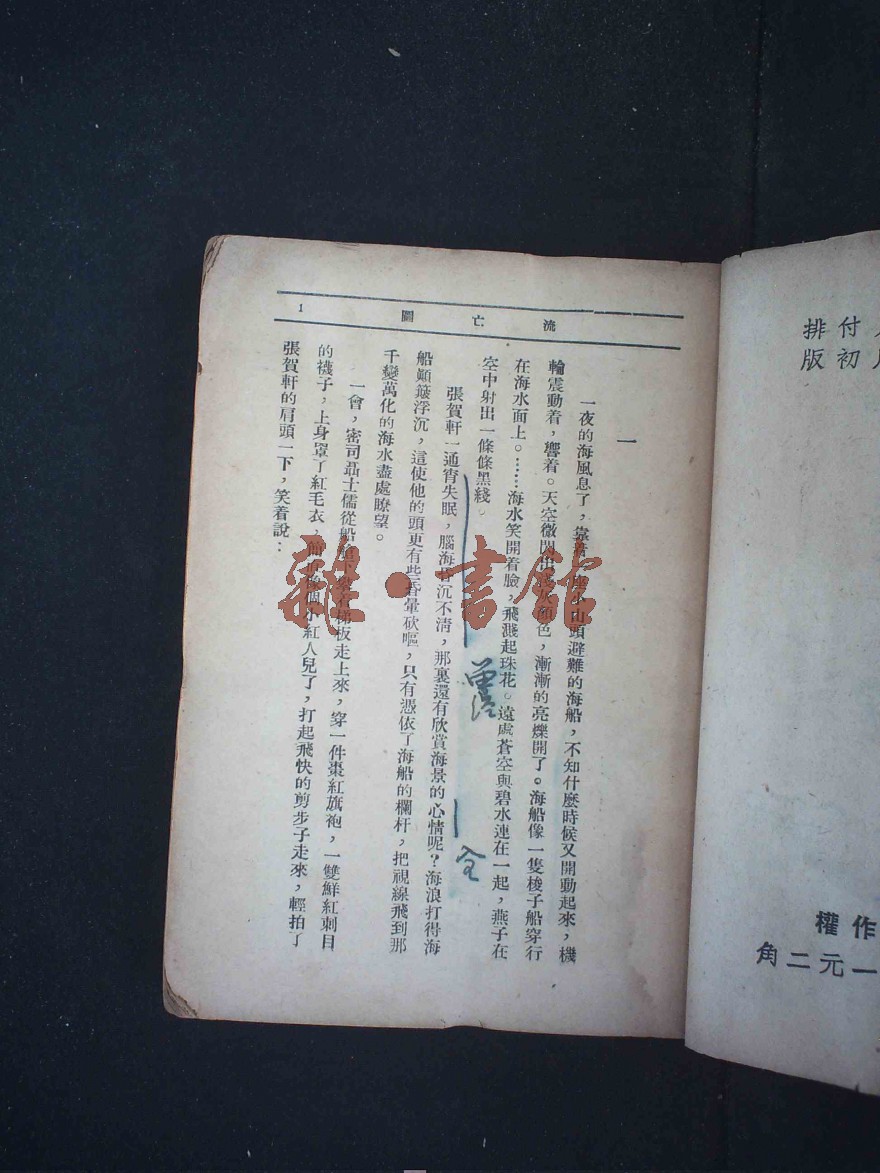 排付
版初
權作
角二元一
流亡圖
1
一
一夜的海風息了，靠着一座小山頭避難的海船，不知什麼時候又開動起來，機
輪震動着，響着。天空微閃出淺灰顏色，漸漸的亮爍開了。海船像一隻梭子船穿行
在海水面上。……海水笑開着臉，飛濺起珠花。遠處蒼空與碧水連在一起，燕子在
空中射出一條條黑綫。
張賀軒一通宵失眠，腦海昏沉不清，那裏還有欣賞海景的心情呢？海浪打得海
船顛簸浮沉，這使他的頭更有些昏暈砍嘔，只有憑依了海船的欄杆，把視線飛到那
千變萬化的海水盡處瞭望。
一會，密司聶士儒從船艙下梯板走上來，穿一件棗紅旗袍，一雙鮮紅刺目
的襪子，上身罩了紅毛衣，個小紅人兒了，打起飛快的剪步子走來，輕拍了
張賀軒的肩頭一下，笑着說：
全
雜·書館